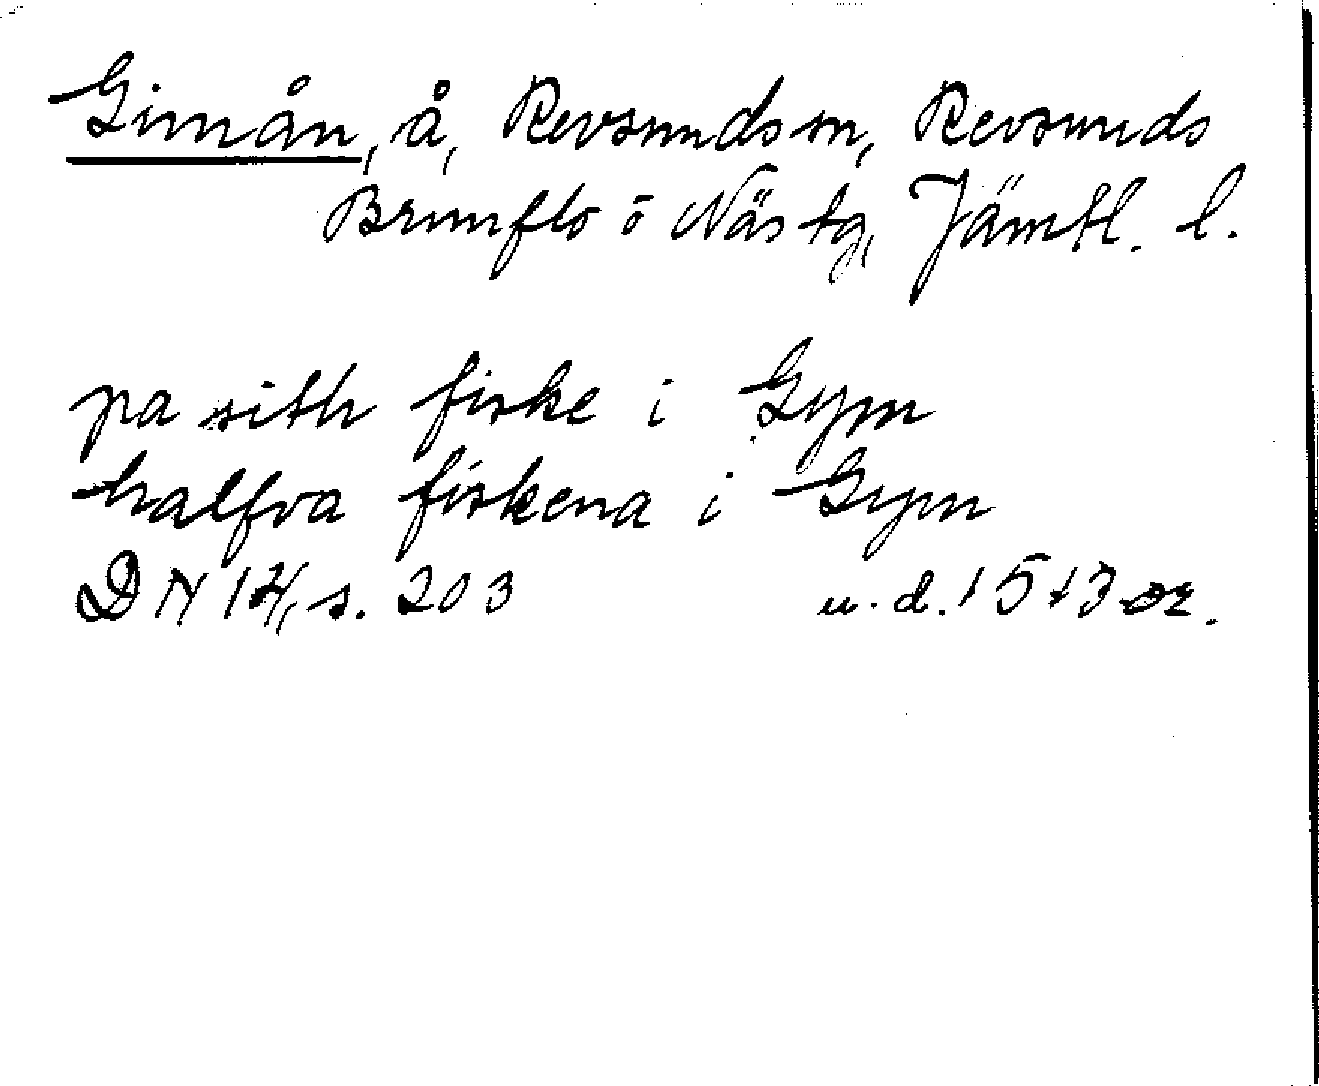 Gimån, å, Revsunds sn, Revsunds
Brunflo o Näs tg, Jämtl. l.
pa sith fiske i Gym
halfva fiskena i Gym
DN 14, s. 203 u. d. 1513 or.